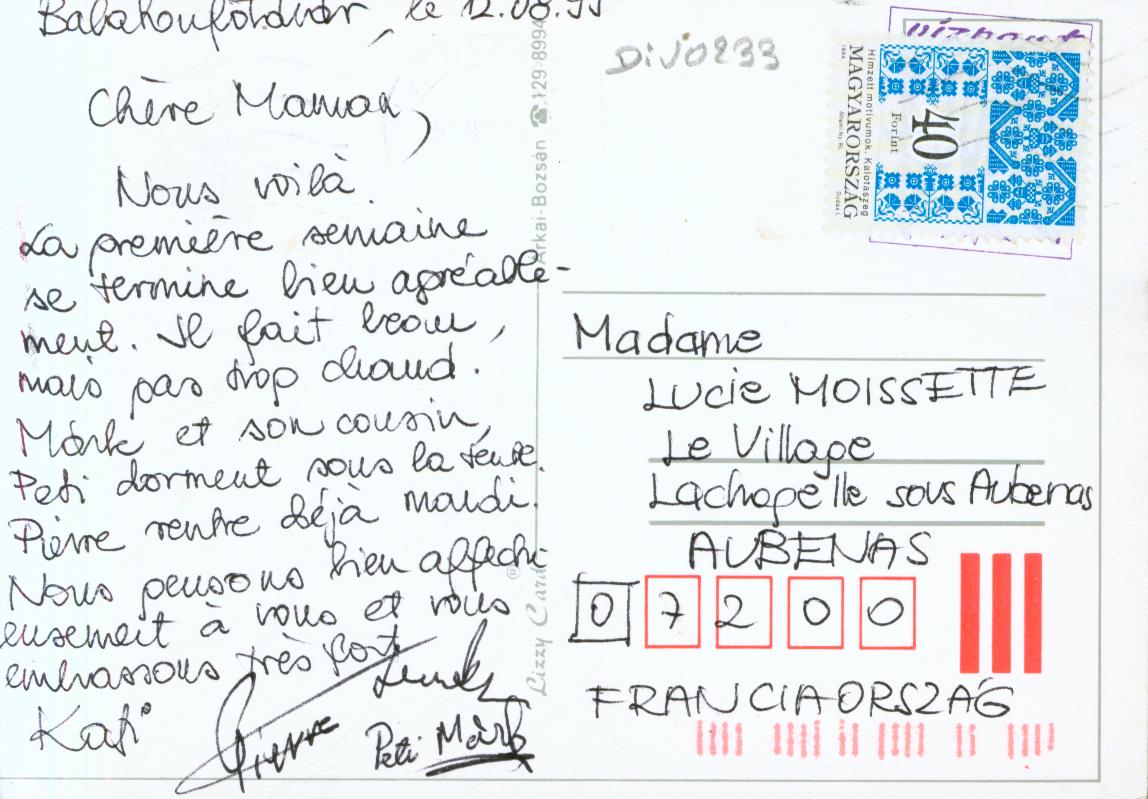 Balatonföldvár, le 12.08.99
Chère Maman,
Nous voilà
La première semaine
se termine bien agréable-
ment. Il fait beau,
mais pas trop chaud.
Márk et son cousin,
Peti dorment sous la tente.
Pierre rentre déjà mardi.
Nous pensons bien affectu
eusement à vous et vous
embrassons très fort
Kati
Pierre
Peti Márk
Lizzy Card ®
Árkai-Bozsán ☎ 129-8994
DIV0233
Hímzett motívumok. Kalotaszeg
MAGYARORSZÁG
1994
Állami Ny. Rt.
Dudás L.
40
Forint
Madame
Lucie MOISSETTE
Le Village
Lachapelle sous Aubenas
AUBENAS
07200
FRANCIAORSZÁG